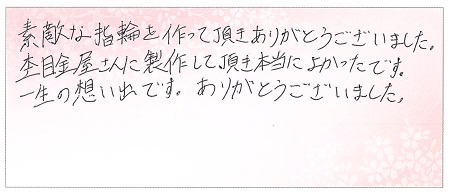 素敵な指輪を作って頂きありがとうございました。
杢目金屋さんに製作して頂き本当によかったです。
一生の想い出です。ありがとうございました。